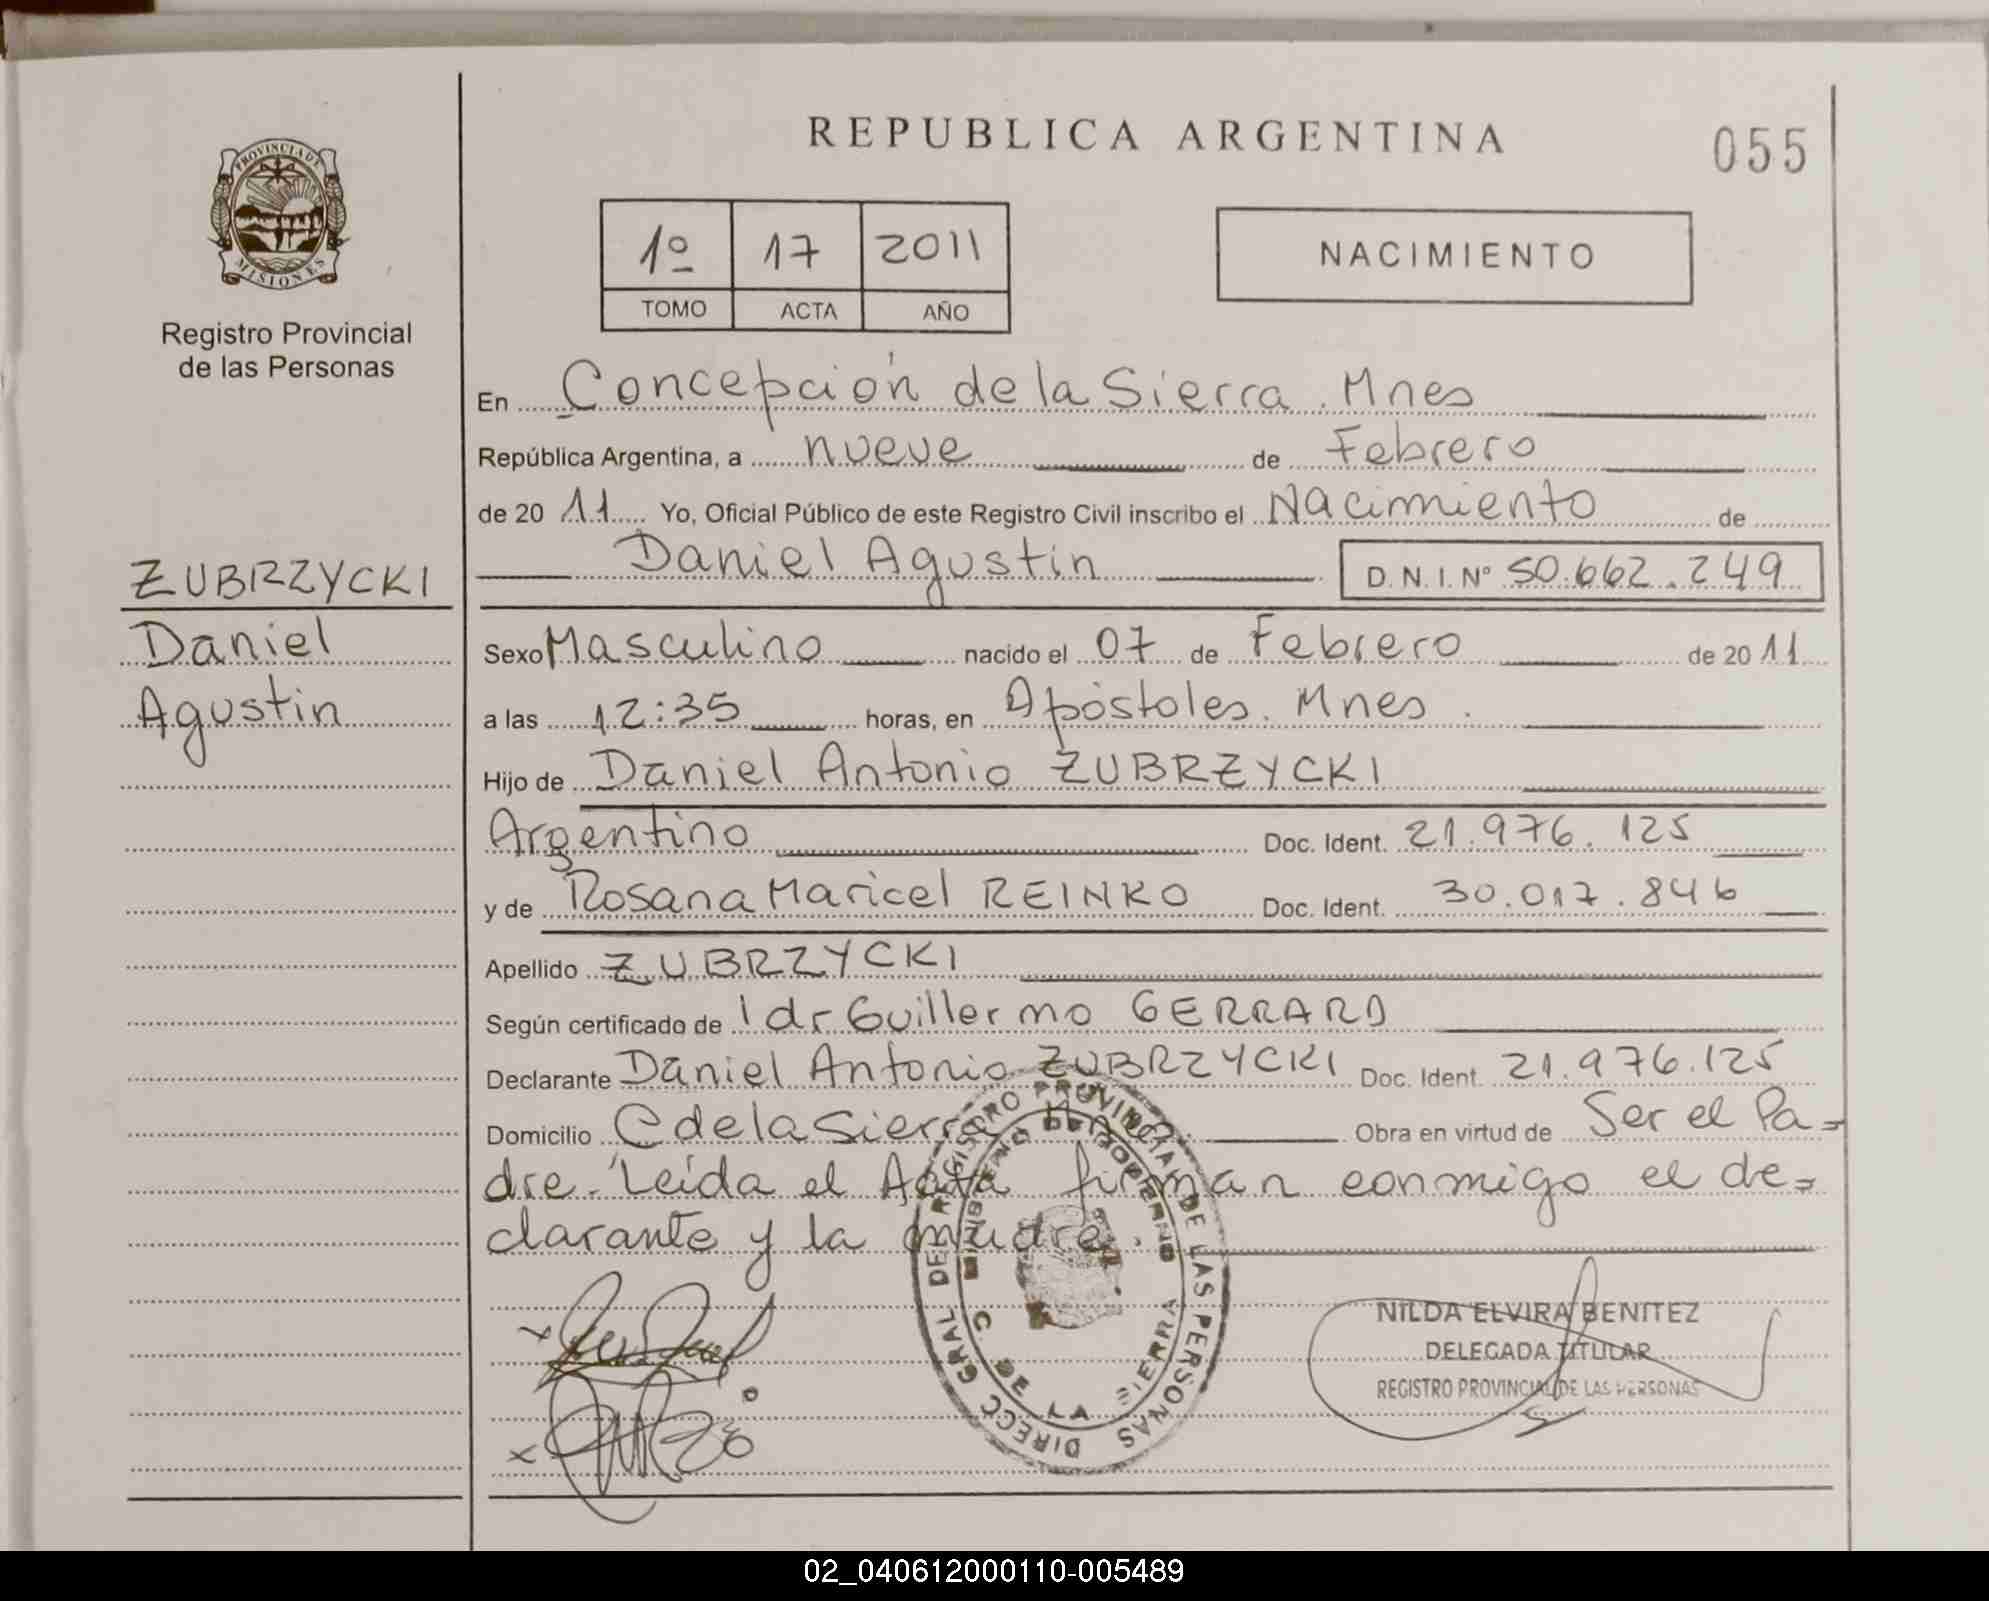 REPUBLICA ARGENTINA
055
PROVINCIA DE
MISIONES
Registro Provincial
de las Personas
1º 17 2011
TOMO ACTA AÑO
NACIMIENTO
En Concepción de la Sierra. Mnes
República Argentina, a nueve de Febrero
de 2011 Yo, Oficial Público de este Registro Civil inscribo el Nacimiento de
Daniel Agustin D.N.I. Nº 50.662.249
ZUBRZYCKI
Daniel
Agustin
Sexo Masculino nacido el 07 de Febrero de 2011
a las 12:35 horas, en Apóstoles. Mnes.
Hijo de Daniel Antonio ZUBRZYCKI
Argentino Doc. Ident. 21.976.125
y de Rosana Maricel REINKO Doc. Ident. 30.017.846
Apellido ZUBRZYCKI
Según certificado de 1 dr Guillermo GERRARD
Declarante Daniel Antonio ZUBRZYCKI Doc. Ident. 21.976.125
Domicilio C de la Sierra Mnes. Obra en virtud de Ser el Pa-
dre. Leída el Acta firman conmigo el de=
clarante y la madre.
DIRECC GRAL DE REGISTRO PROVINCIAL DE LAS PERSONAS
MINISTERIO DE GOBIERNO
C. DE LA SIERRA
NILDA ELVIRA BENITEZ
DELEGADA TITULAR
REGISTRO PROVINCIAL DE LAS PERSONAS
02_040612000110-005489